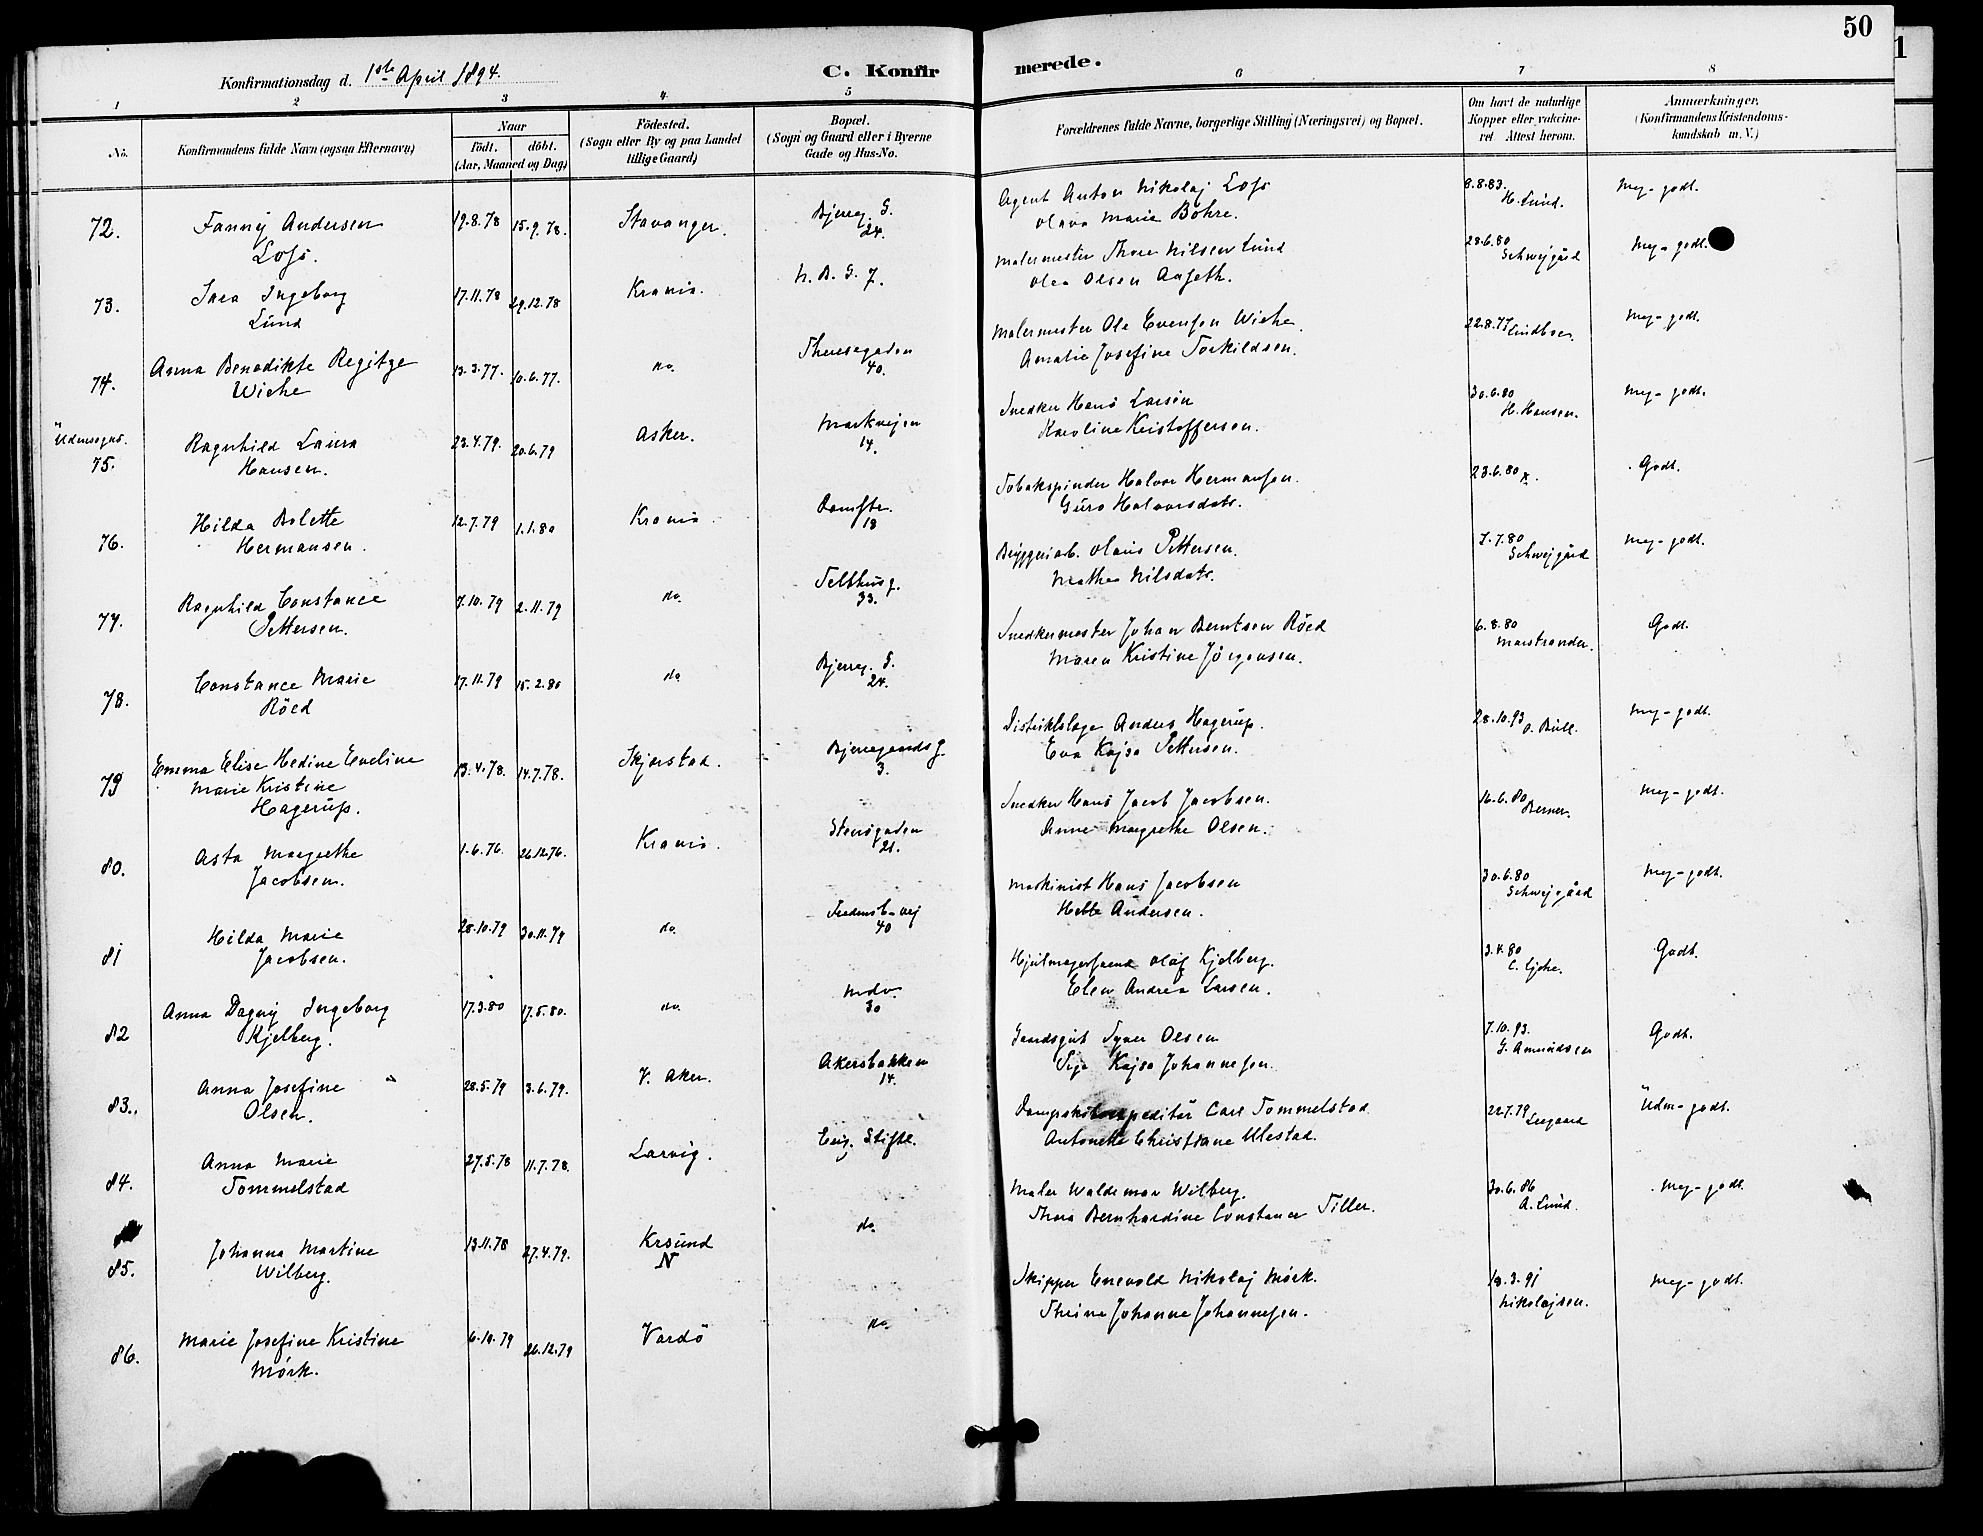 50
1
Konfirmationsdag d. 1ste April 1894.
C. Konfirmerede.
1 2 3 4 5 6 7 8
No.
Konfirmandens fulde Navn (ogsaa Efternavn)
Naar
født. døbt.
(Aar, Maaned og Dag)
Fødested.
(Sogn eller By og paa Landet
tillige Gaard)
Bopæl.
(Sogn og Gaard eller i Byerne
Gade og Hus-No.
Forældrenes fulde Navne, borgerlige Stilling (Næringsvei) og Bopæl.
Om havt de naturlige
Kopper eller vakcine-
ret. Attest herom.
Anmærkninger.
(Konfirmandens Kristendoms-
kundskab m. V.)
72. Fanny Andersen 19.8.78 15.9.78. Stavanger. Bjerreg. G. Agent Anton Nikolaj Lofs 8.8.83. Meg-godt.
Lofs. 24. Olava Marie Bøhre. H. Lund.
73. Sara Ingeborg 17.11.78 29.12.78 Krania. N. B. G. 7. Malermester Thore Nilsen Lund 28.6.80 Meg-godt.
Lund Olea Olsen Aaseth. Schwejgård
74. Anna Benedikte Regitze 13.3.77. 10.6.77. do. Theresegaden Malermester Ole Evensen Wiehe 22.8.77 Lindboe. Meg-godt.
Wiehe 40. Amalie Josefine Torkildsen.
Udensogns.
75. Ragnhild Laura 23.4.79. 20.6.79 Asker. Markvejen Snedker Hans Larsen 30.6.80 Meg-godt.
Hansen. 14. Karoline Kristoffersen. H. Hansen.
76. Hilda Bolette 12.7.79 1.1.80 Krania. Damstr. Tobakspinder Halvor Hermansen. 23.6.80 Godt.
Hermansen. 18 Guro Halvorsdatr.
77. Ragnhild Constance 7.10.79 2.11.79 do. Telthusg. Bryggeriarb. Olaus Pettersen. 7.7.80 Meg-godt.
Pettersen. 33. Mathea Nilsdatr. Schwejgård
78. Constance Marie 17.11.79 15.2.80 do Bjerreg. G. Snedkermester Johan Berntsen Röed 6.8.80 Godt.
Röed 24. Maren Kristine Jörgensen. Marstrander.
79 Emma Elise Hedine Eveline 13.4.78. 14.7.78. Skjerstad. Bjerregaardsg. Distriktslæge Anders Hagerup. 28.10.93 O. Bull. Meg-godt.
Marie Kristine 3. Eva Kajsa Pettersen.
Hagerup.
80. Asta Margrethe 1.6.76. 26.12.76. Krania. Stensgaden Snedker Hans Jacob Jacobsen. 16.6.80 Meg-godt.
Jacobsen. 21. Anne Margrethe Olsen. Berner.
81 Hilda Marie 28.10.79 30.11.79 do. Fredensb-vej Maskinist Hans Jacobsen 30.6.80 Meg-godt.
Jacobsen. 40 Hette Andersen. Schwejgård
82 Anna Dagny Ingeborg 17.3.80 17.5.80. do. Hjulmagersvend Olaf Kjelberg. 3.4.80 Godt.
Kjelberg. 30 Elen Andrea Larsen.
83. Anna Josefine 28.5.79 3.6.79. V. Aker. Akersbakken Gaardsgut Syver Olsen 7.10.93. Godt.
Olsen. 14. Kajsa Johannesen. G. Amundsen
84. Anna Marie 27.5.78 11.7.78. Larvig. Eug. Stiftl. Dampskibsexpeditör Carl Tommelstad 22.7.79 Udm-godt.
Tommelstad Antonette Christiane Ulestad. Leegaard
85. Johanna Martine 13.11.78 27.4.79. Krsund do. Maler Waldemar Wilberg. 30.6.86 Meg-godt.
Wilberg. N Thora Bernhardine Constance Tiller. A. Lund.
86. Marie Josefine Kristine 6.10.79 26.12.79 Vardö do. Skipper Enevold Nikolaj Mörk. 18.3.91 Meg-godt.
Mörk. Thrine Johanne Johannesen. Nikolajsen.